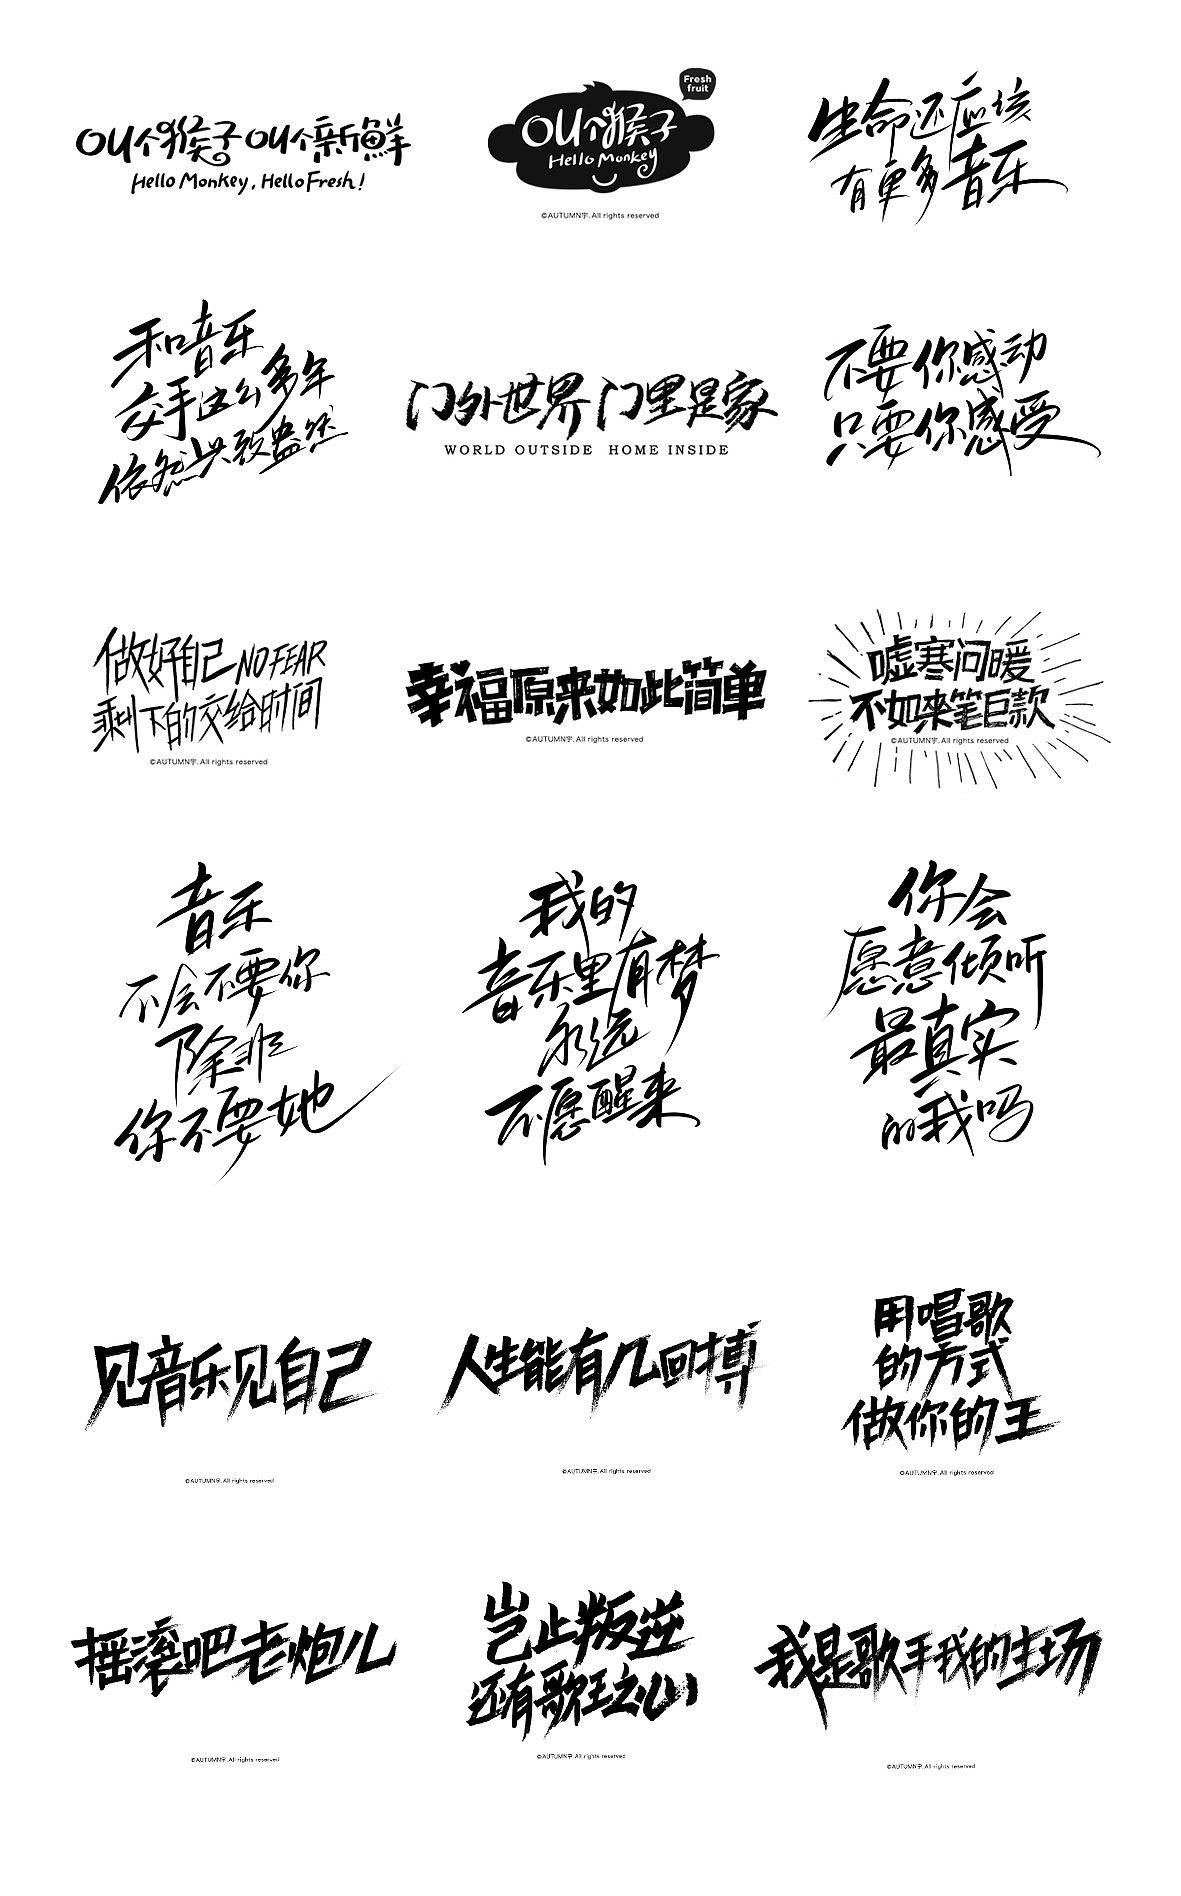 OU个猴子 OU个新鲜
Hello Monkey, Hello Fresh!
Fresh
fruit
OU个猴子
Hello Monkey
©AUTUMN字.All rights reserved
生命还应该
有更多音乐
和音乐
交手这么多年
依然兴致盎然
门外世界 门里是家
WORLD OUTSIDE HOME INSIDE
不要你感动
只要你感受
做好自己 NO FEAR
剩下的交给时间
©AUTUMN字.All rights reserved
幸福原来如此简单
©AUTUMN字.All rights reserved
嘘寒问暖
不如来笔巨款
©AUTUMN字.All rights reserved
音乐
不会不要你
除非
你不要她
我的
音乐里有梦
永远
不愿醒来
你会
愿意倾听
最真实
的我吗
见音乐见自己
©AUTUMN字.All rights reserved
人生能有几回搏
©AUTUMN字.All rights reserved
用唱歌
的方式
做你的王
©AUTUMN字.All rights reserved
摇滚吧老炮儿
©AUTUMN字.All rights reserved
岂止叛逆
还有歌王之心
©AUTUMN字.All rights reserved
我是歌手我的主场
©AUTUMN字.All rights reserved